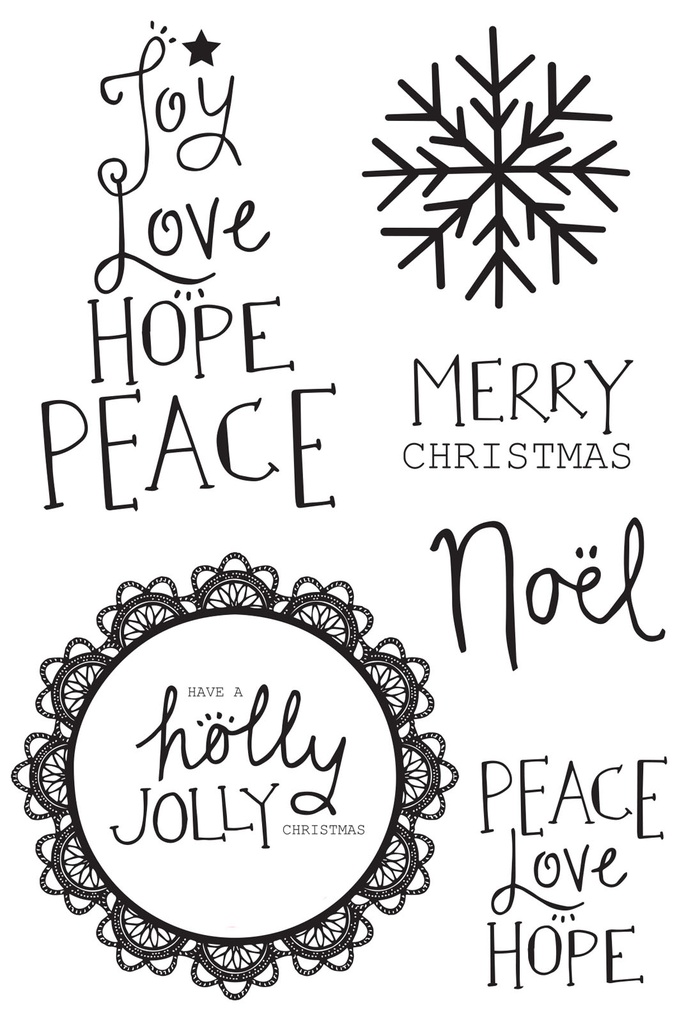 Joy
Love
HOPE
PEACE
MERRY
CHRISTMAS
Noël
HAVE A
holly
JOLLY
CHRISTMAS
PEACE
Love
HOPE